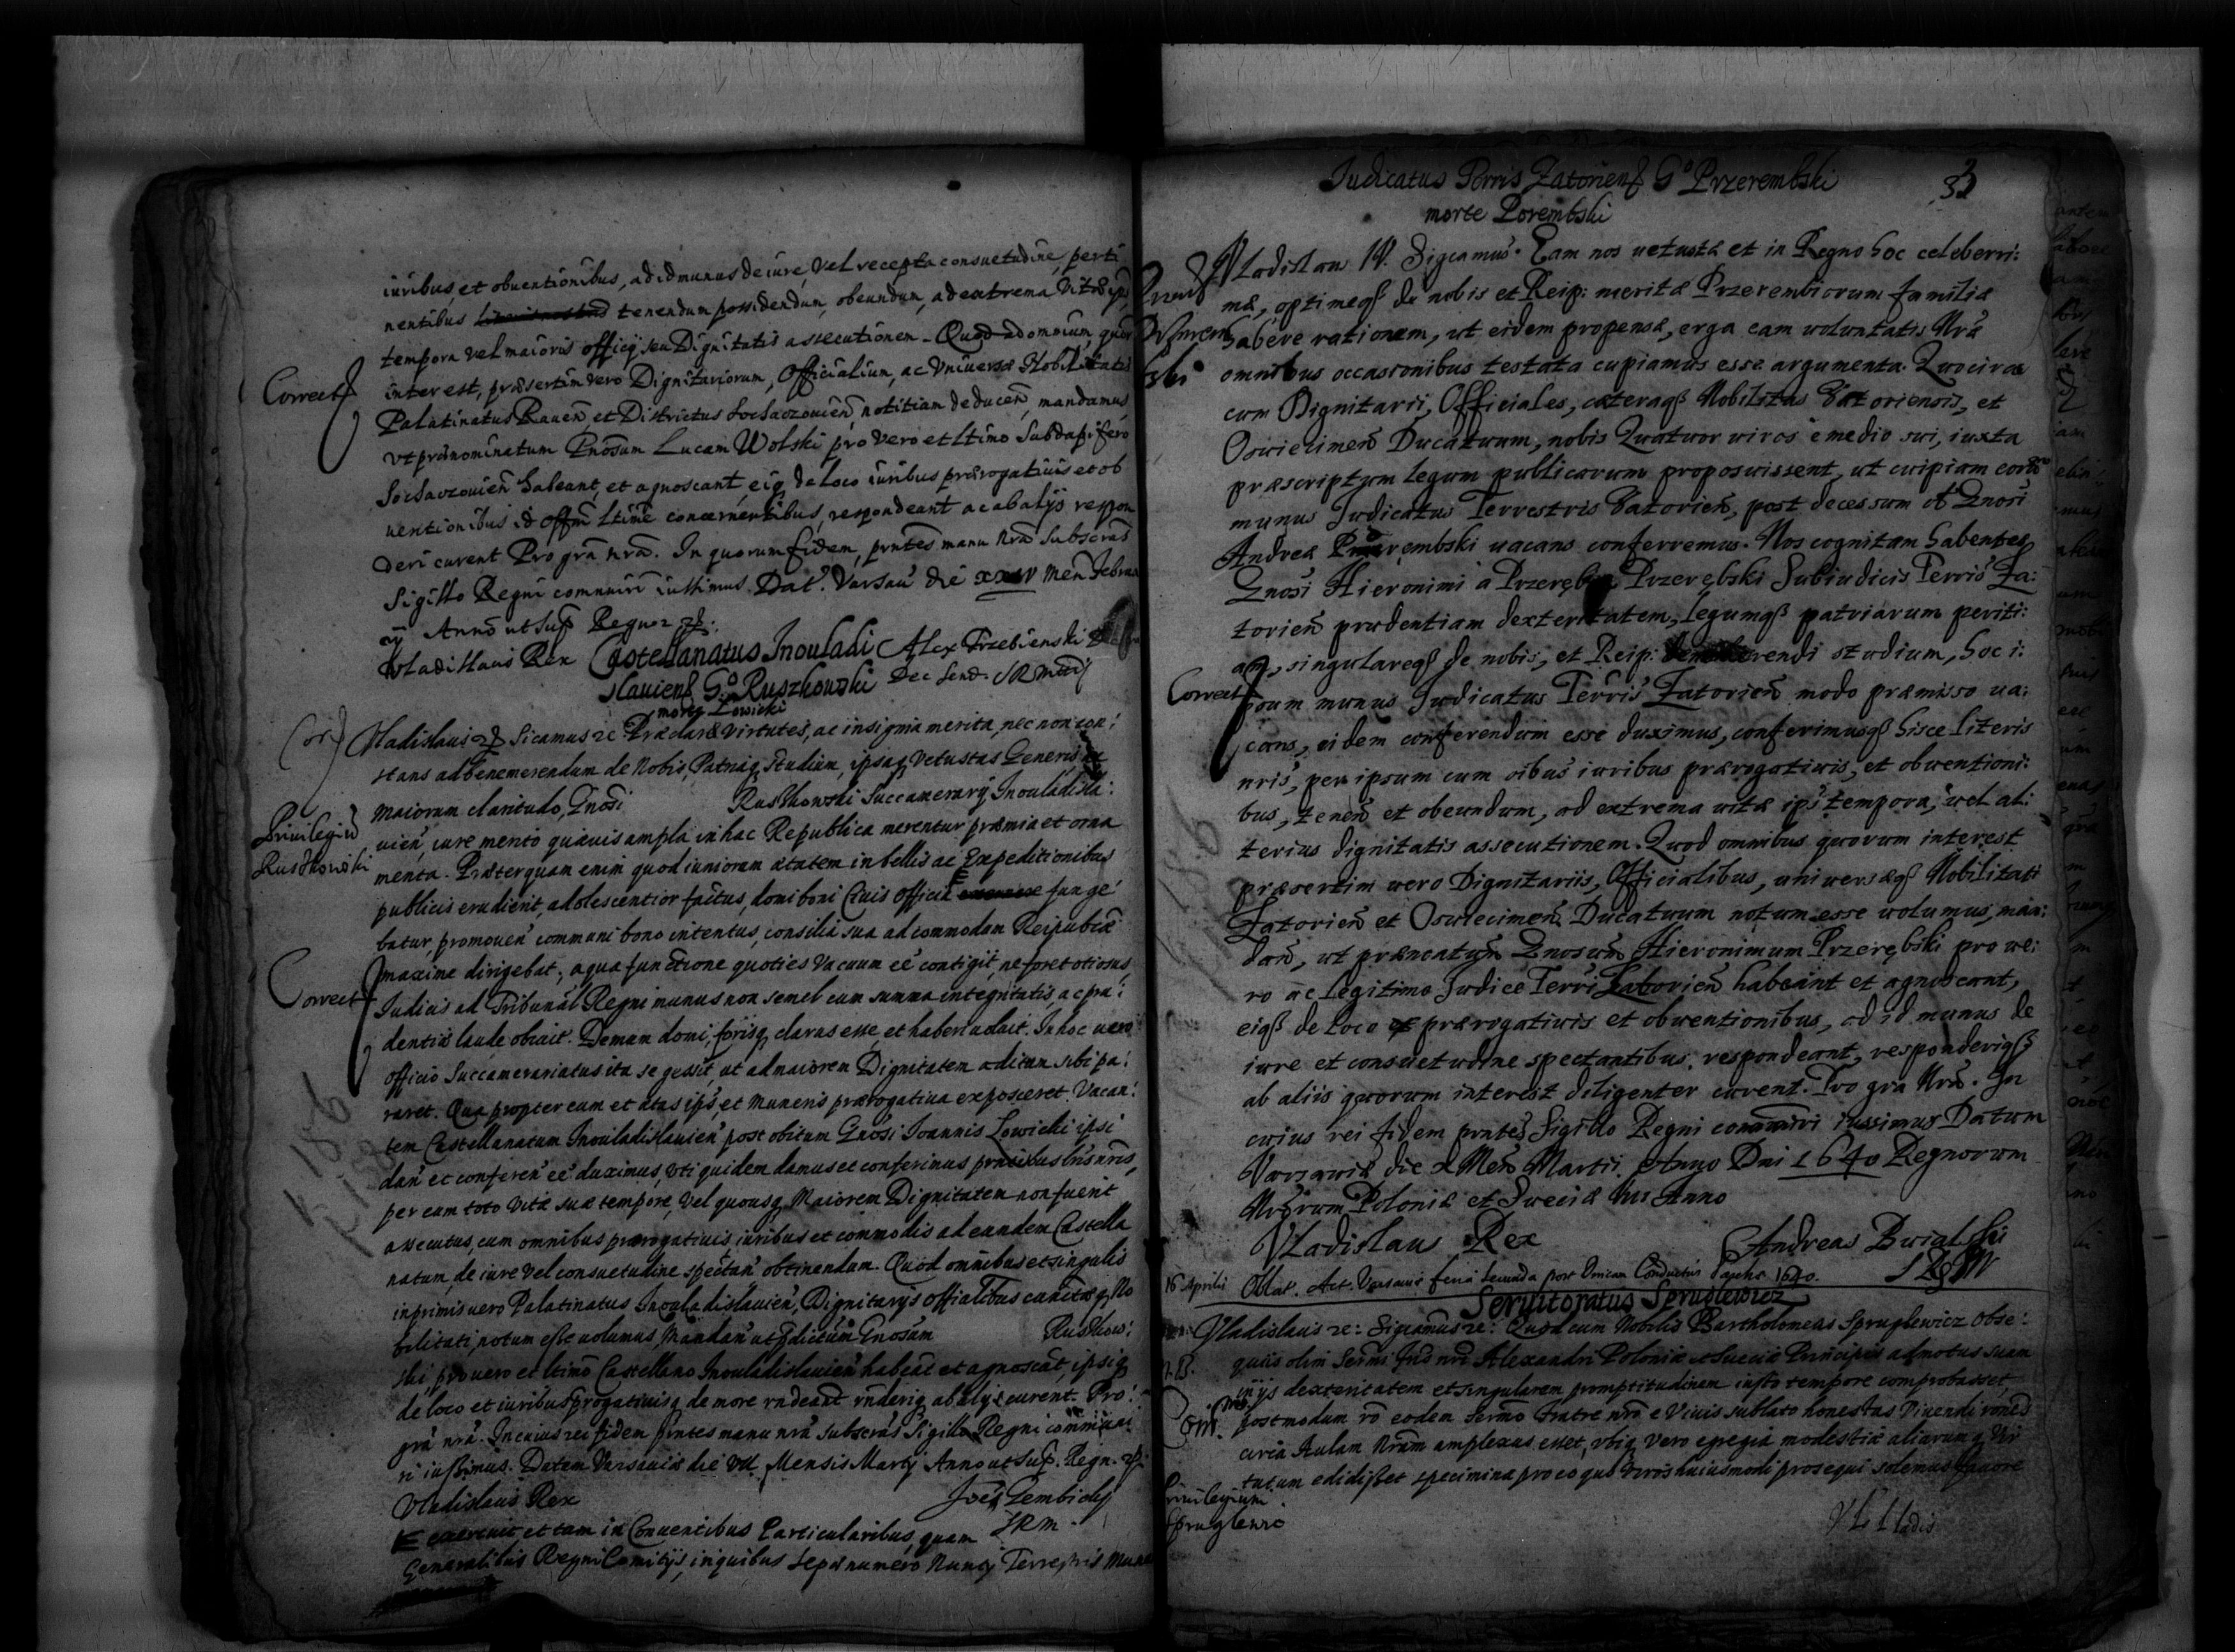 iuribus, et obuentionibus, ad id munus de iure, vel recepta consuetudine, perti
nentibus tenendum possidendum, obeundum, ad extrema vitæ ips
tempora vel maioris officij seu Dignitatis assecutionem. Quod ad omnium, quor
interest, præsertim vero Dignitariorum, Officialium, ac Vniuersæ Nobilitatis
Correct
Palatinatus Rauen et Districtus Sochaczouien notitiam deducen, mandamus,
vt prænominatum Gnosum Lucam Wolski pro vero et ltimo Subdapifero
Sochaczouien habeant, et agnoscant, eiq de loco iuribus prærogatiuis et ob
uentionibus id offm ltime concernentibus, respondeant ac ab alijs respon
deri curent Pro gra nra. In quorum fidem, pntes manu nra subscras
Sigillo Regni communiri iussimus. Dat. Varsau die xxiv Men Februa
rij Anno ut sup Regnor
Vladislaus Rex
Castellanatus Inouladi
slauiens Gº Ruszkowski
morte Lowicki
Alex Trzebienski
Dec Lend. SRMttis
Cor
Vladislaus Sicamus &c Præclaræ virtutes, ac insignia merita, nec non con:
stans ad benemerendum de Nobis, Patriaq studium, ipsaq vetustas Generis
maiorum claritudo, Gnosi Ruszkowski Succamerarij Inouladisla:
Priuilegiu
Ruszkowski
uien, iure merito quæuis ampla in hac Republica merentur præmia et orna
menta. Præterquam enim quod iuniorem ætatem in bellis ac Expeditionibus
publicis erudierit, adolescentior factus, domi boni Ciuis officia funge
batur, promouen communi bono intentus, consilia sua ad commodum Reipublicæ
Correct
maxime dirigebat; a qua functione quoties vacuum eé contigit, ne foret otiosus,
Iudicis ad Tribunal Regni munus non semel cum summa integritatis ac pru:
dentiæ laude obiuit. Demum domi, forisq clarus esse, et haberi uoluit. In hoc uero
officio Succamerariatus ita se gessit, ut ad maiorem Dignitatem aditum sibi pa:
raret. Qua propter cum et ætas ips et muneris prærogatiua exposceret. Vacan:
tem Castellanatum Inouladislauien post obitum Gnosi Ioannis Lowicki ipsi
dan et conferen eé duximus, vti quidem damus et conferimus pnsibus lris nris,
per eum toto vitæ suæ tempore, vel quousq Maiorem Dignitatem non fuerit
assecutus, cum omnibus prærogatiuis iuribus et commodis ad eundem Castella
natum, de iure vel consuetudine spectan obtinendum. Quod omnibus et singulis
inprimis uero Palatinatus Inouladislauien, Dignitarijs offialibus cunctæq No
bilitati, notum esse uolumus, Mandan ut pdictum Gnosum Ruszkow:
ski, pro uero et ltimo Castellano Inouladislauien habeat et agnoscat, ipsiq
de loco et iuribus progatiuisq de more rndeant rnderiq ab alijs curent. Pro
gra nra. In cuius rei fidem pntes manu nra subscras Sigillo Regni commua:
ri iussimus. Datum Varsauiæ die VII Mensis Martij Anno ut sup. Regn.
Vladislaus Rex
Joes Gembicky
SRM.
exercuit et tam in Conuentibus Particularibus, quam
Generalibus Regni Comitijs, in quibus sepænumero Nuncij Terrestris Mun
Judicatus Terris Zatoriens Gº Przerembski
morte Porembski
Vladislaus IV. Sigcamus. Eam nos uetustæ et in Regno hoc celeberri:
mæ, optimeqß de nobis et Reip: meritæ Przerembiorum familiæ
habere rationem, ut eidem propensæ, erga eam uoluntatis Nræ
omnibus occasionibus testata cupiamus esse argumenta. Quocirca
cum Dignitarii, Officiales, cæteraqß Nobilitas Zatoriensis, et
Oswiecimen Ducatuum, nobis Quatuor uiros è medio sui, iuxta
præscriptum legum publicarum proposuissent, ut cuipiam eorum
munus Judicatus Terrestris Zatorien, post decessum ol Gnosi
Andreæ Porembski uacans conferremus. Nos cognitam habentes
Gnosi Hieronimi à Przerębie Przerębski Subiudicis Terris Za:
torien prudentiam dexteritatem, legumqß patriarum periti:
am, singulareqß de nobis, et Reip: merendi studium, hoc i:
Correct
psum munus Judicatus Terris Zatorien modo præmisso ua:
cans, eidem conferendum esse duximus, conferimusqß hisce literis
nris, per ipsum cum oibus iuribus prærogatiuis, et obuentioni:
bus, tenen et obeundum, ad extrema uitæ ips tempora, uel al:
terius dignitatis assecutionem. Quod omnibus quorum interest
præsertim uero Dignitariis, Officialibus, uniuersæqß Nobilitati
Zatorien et Oswiecimen Ducatuum notum esse uolumus, man:
dan, ut prænoatum Gnosum Hieronimum Przerębski pro ue:
ro ac legitimo Judice Terri Zatorien habeant et agnoscant,
eiqß de loco prærogatiuis et obuentionibus, ad id munus de
iure et consuetudine spectantibus, respondeant, responderiqß
ab aliis quorum interest diligenter curent. Pro gra Nra. In
cuius rei fidem pntes Sigillo Regni communiri iussimus Datum
Varsauiæ die x Men Martii Anno Dni 1640 Regnorum
Nrorum Poloniæ et Sueciæ Anno
Vladislaus Rex
16 Aprilis Oblat. Act. Varsauiæ feria secunda post Dnicam Conductus Paschæ 1640.
Seruitoratus Spruglewicz
Vladislaus &c: Sigcamus &c: Quod cum Nobilis Bartholomeus Spruglewicz obse:
quiis olim Sermi Alexandri Poloniæ et Sueciæ Principis admotus suam
iniis dexteritatem et singularem promptitudinem iusto tempore comprobasset,
postmodum ro eodem Sermo Fratre nro e viuis sublato honestas viuendi
circa Aulam Nram amplexus esset, vbiq vero egregia modestiæ aliarumq vir
tutum edidisset specimina pro eo quo viros huiusmodi prosequi solemus fauore
Priuilegium
Spruglewic